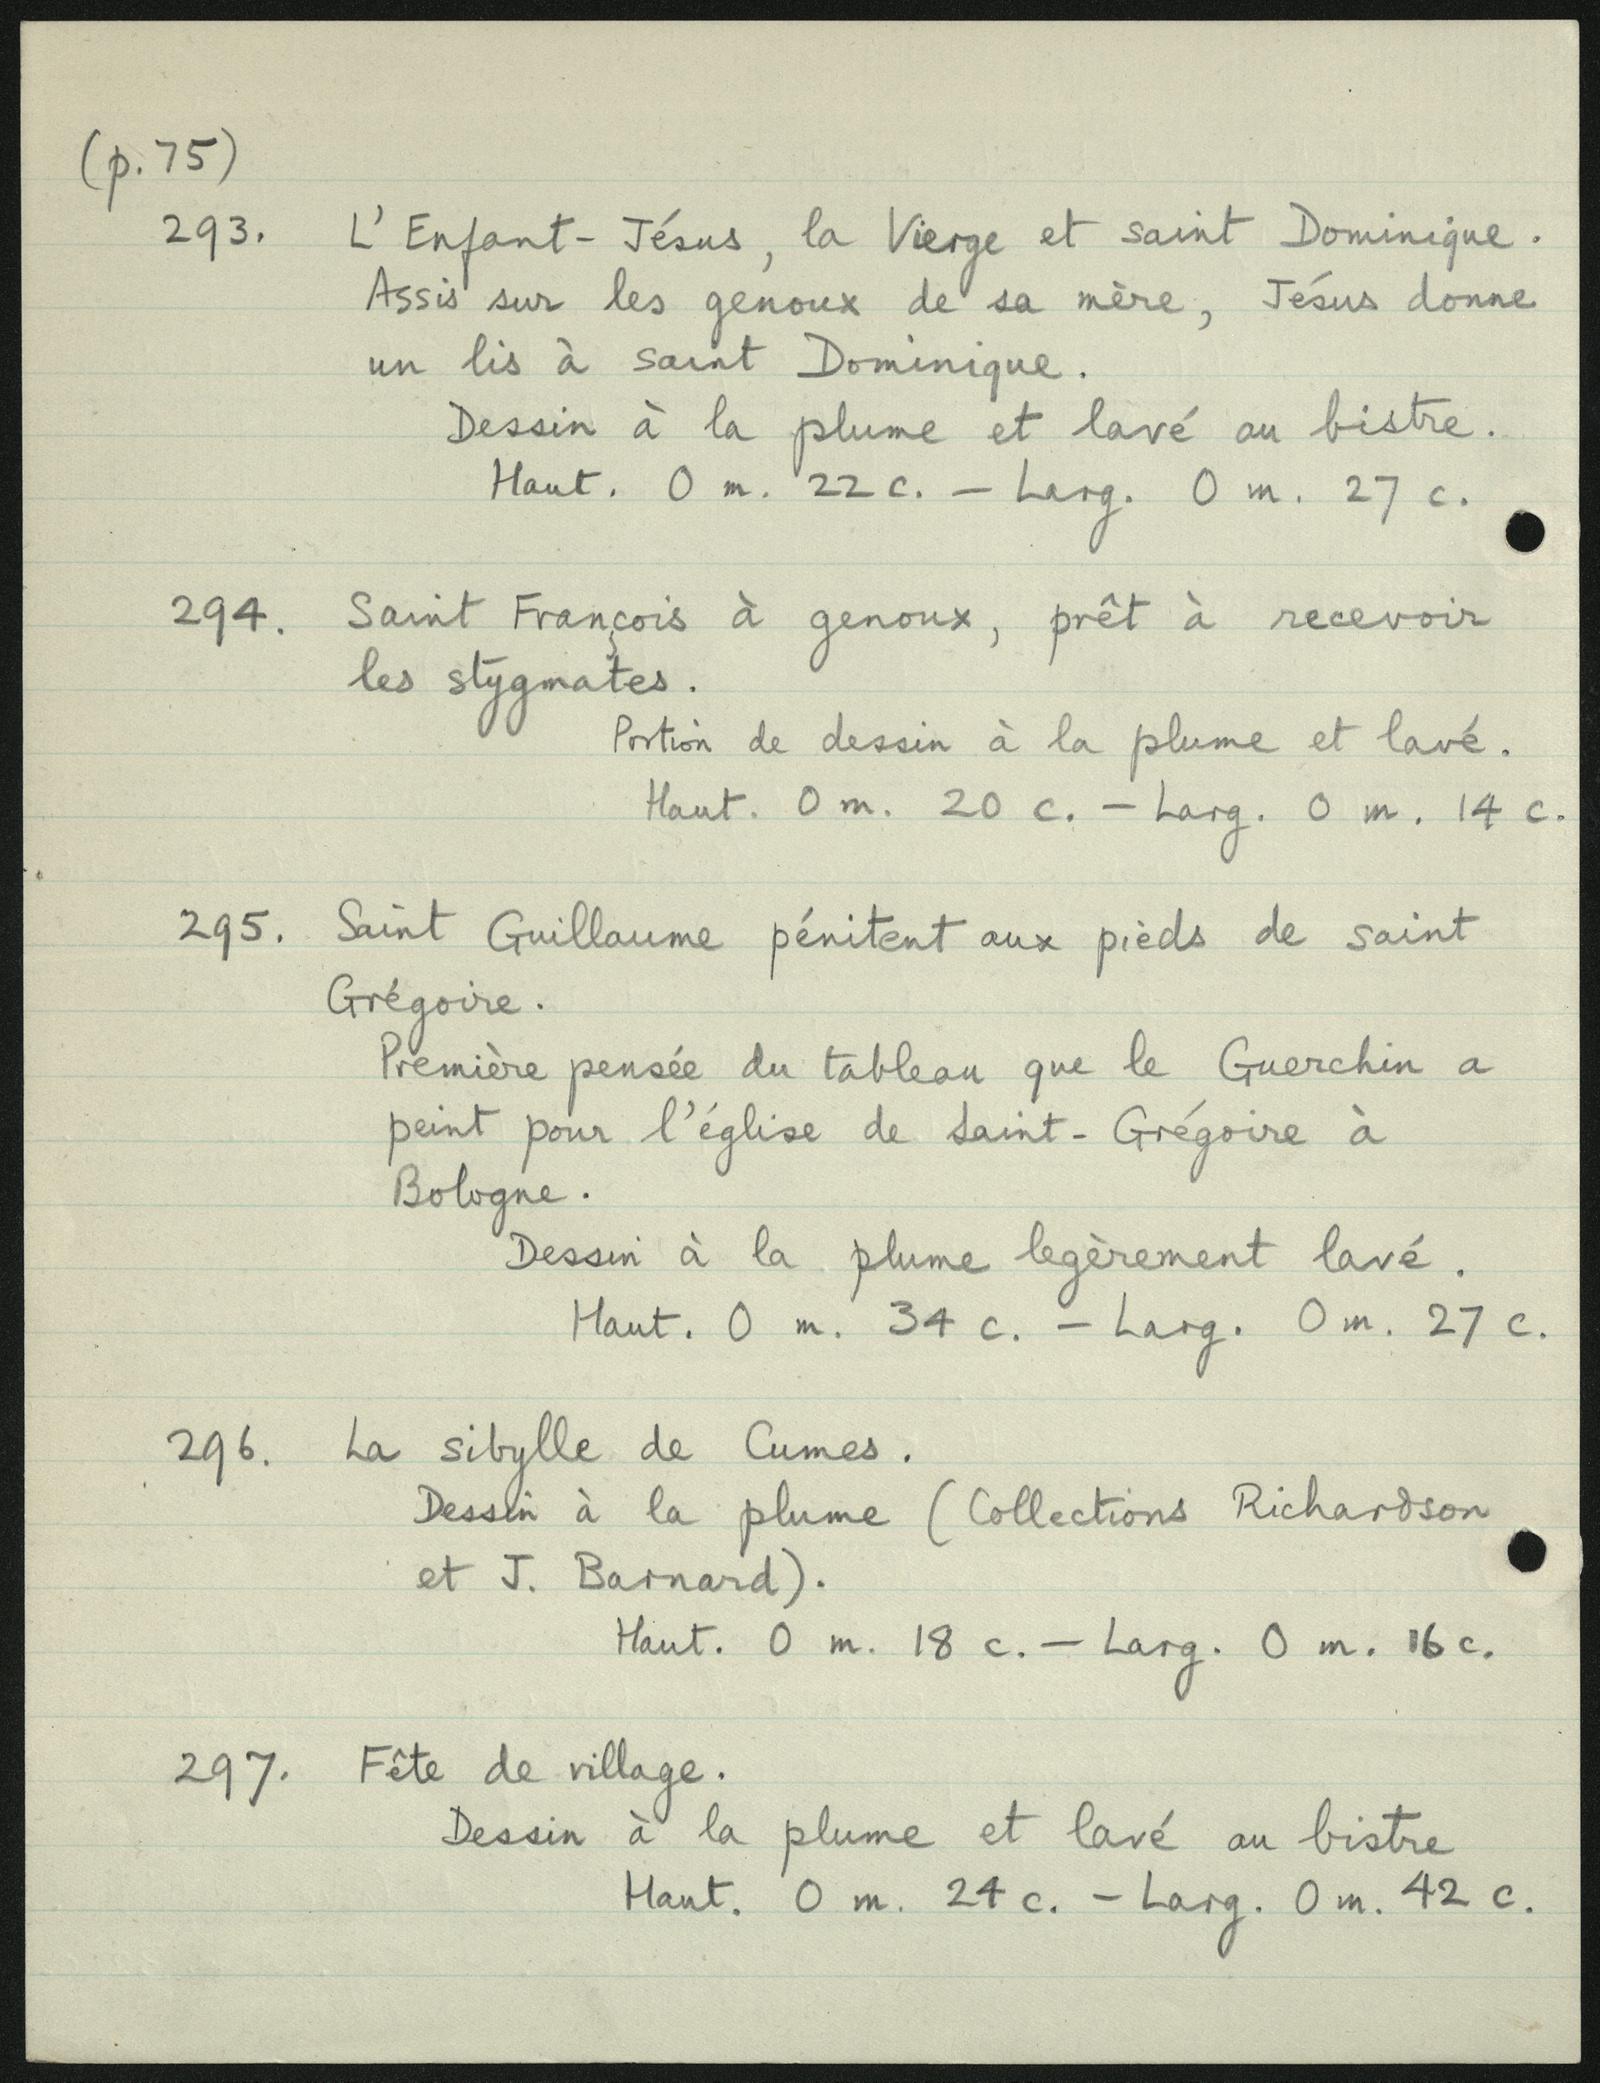 (p. 75)
293. L'Enfant-Jésus, la Vierge et saint Dominique.
Assis sur les genoux de sa mère, Jésus donne
un lis à saint Dominique.
Dessin à la plume et lavé au bistre.
Haut. 0 m. 22 c. – Larg. 0 m. 27 c.
294. Saint François à genoux, prêt à recevoir
les stygmates.
Portion de dessin à la plume et lavé.
Haut. 0 m. 20 c. – Larg. 0 m. 14 c.
295. Saint Guillaume pénitent aux pieds de saint
Grégoire.
Première pensée du tableau que le Guerchin a
peint pour l'église de Saint-Grégoire à
Bologne.
Dessin à la plume legèrement lavé.
Haut. 0 m. 34 c. – Larg. 0 m. 27 c.
296. La sibylle de Cumes.
Dessin à la plume (Collections Richardson
et J. Barnard).
Haut. 0 m. 18 c. – Larg. 0 m. 16 c.
297. Fête de village.
Dessin à la plume et lavé au bistre
Haut. 0 m. 24 c. – Larg. 0 m. 42 c.